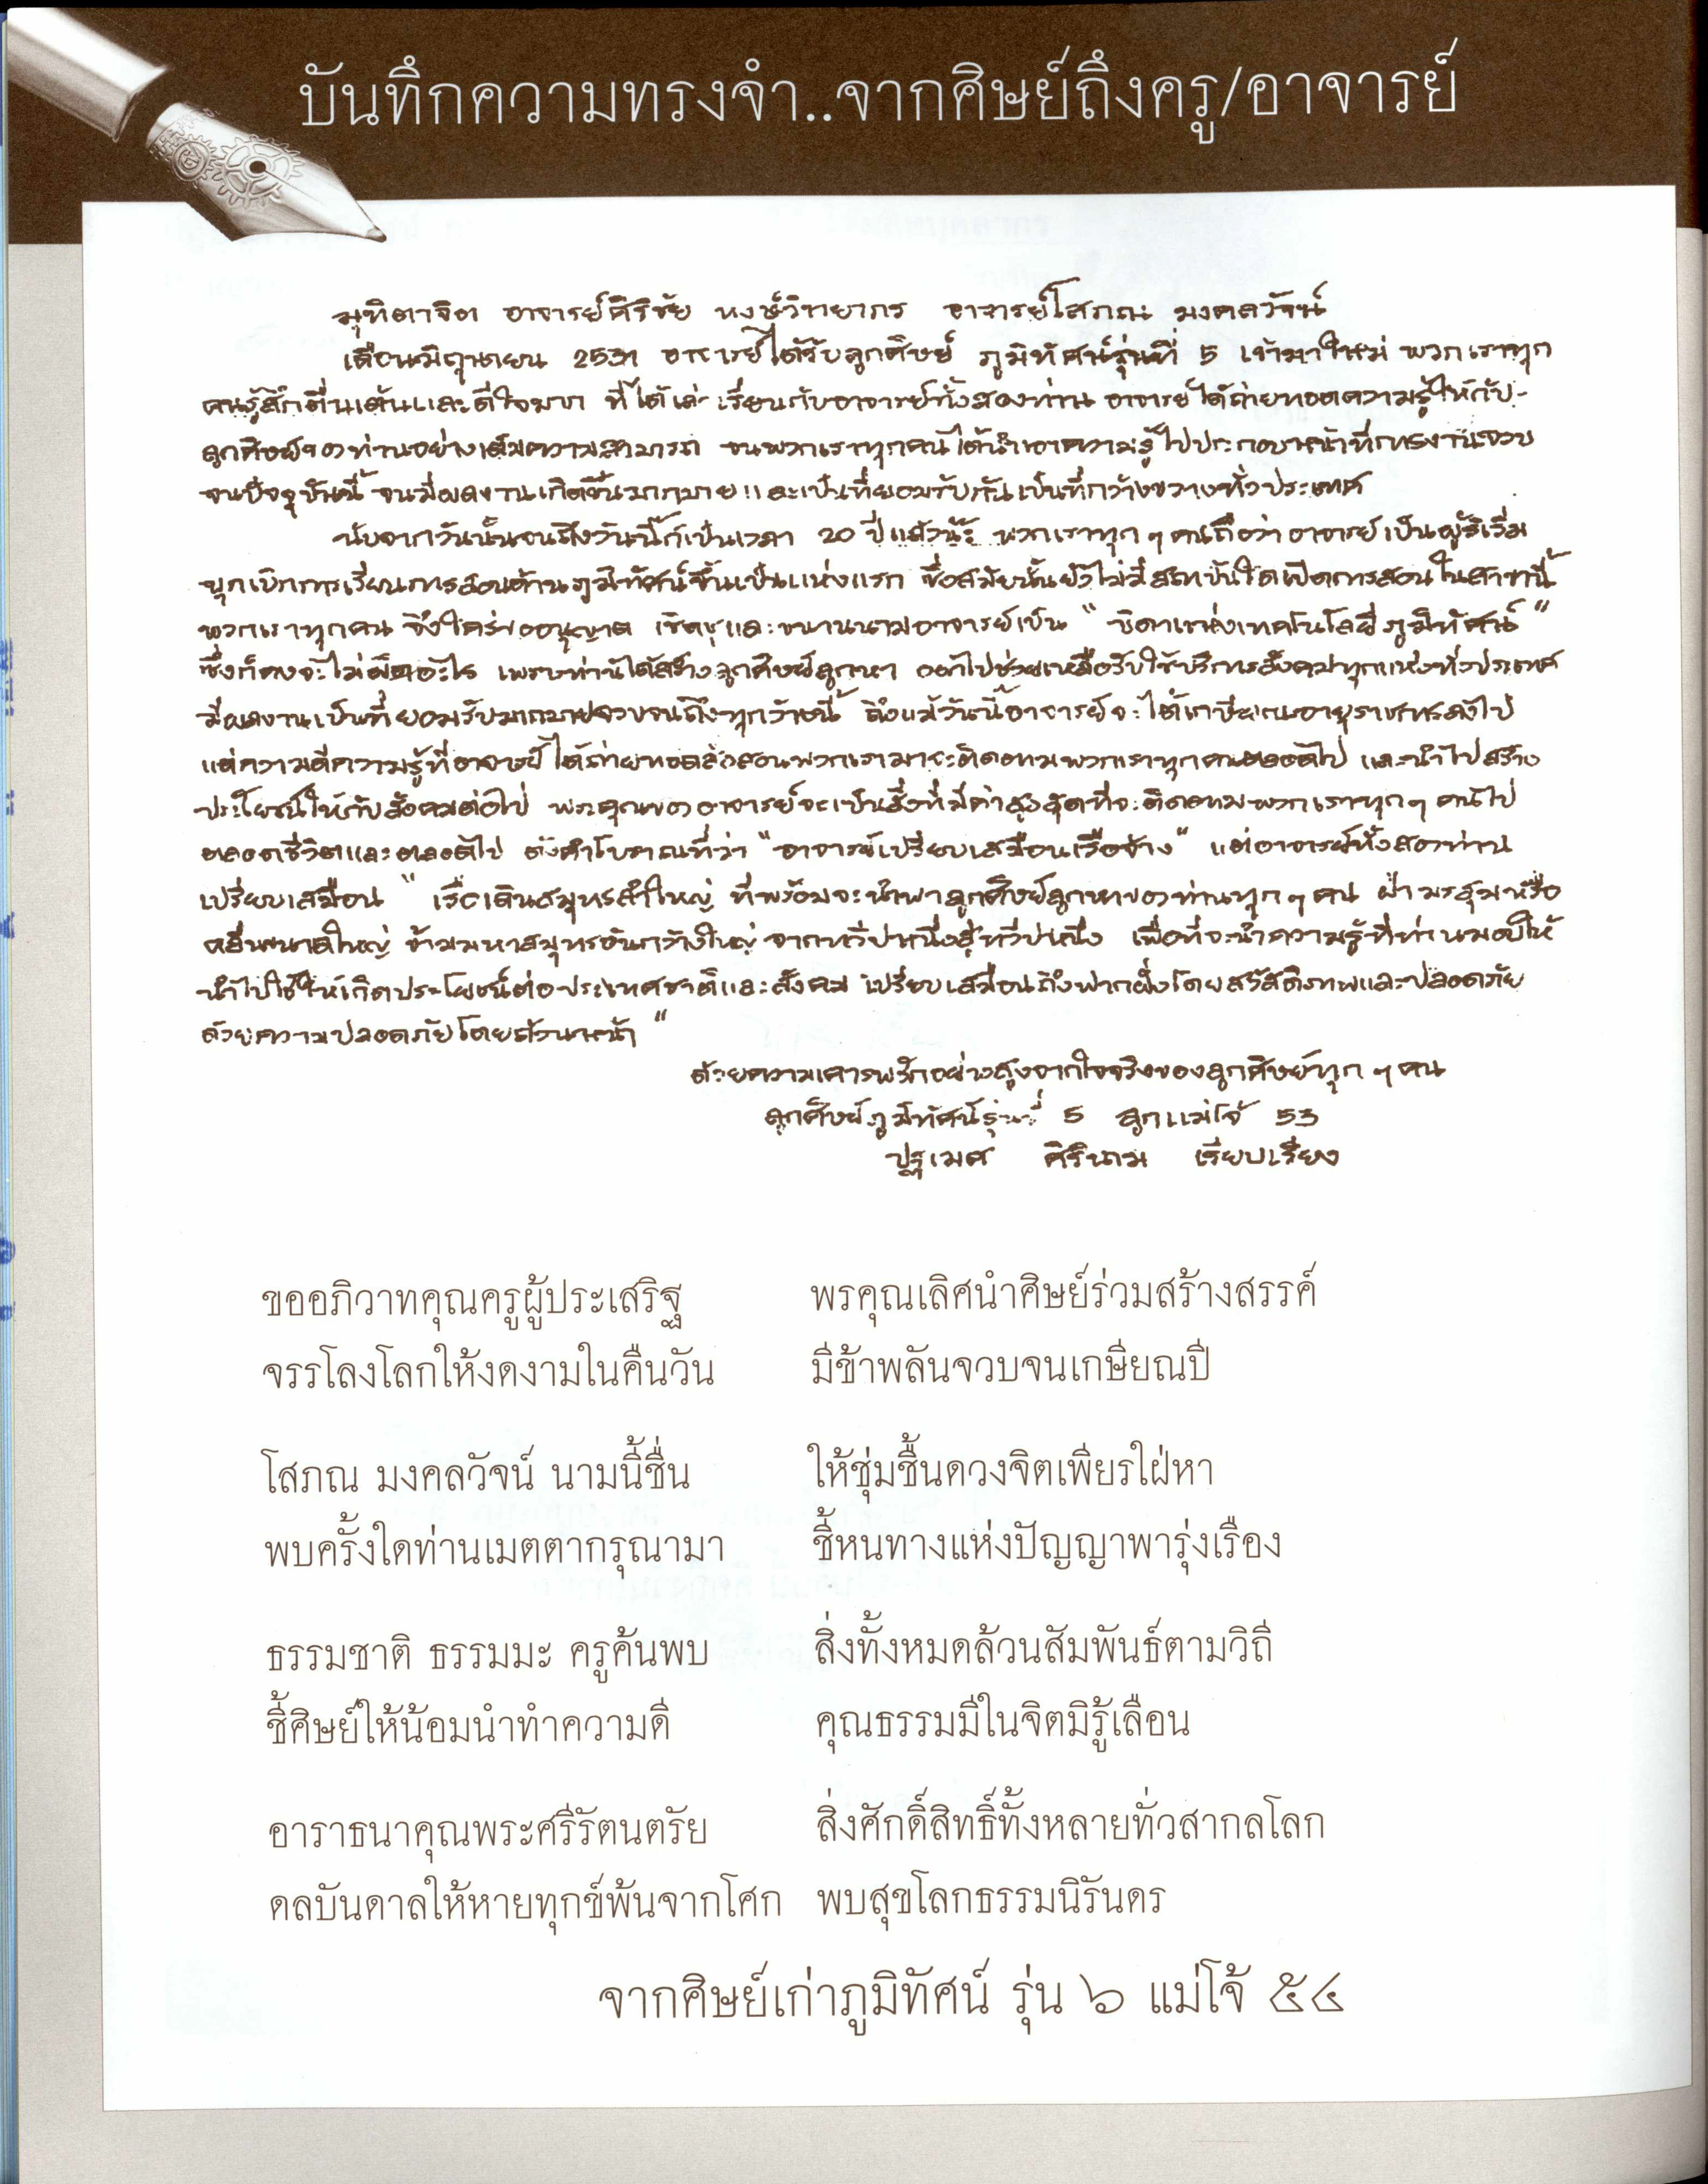 บันทึกความทรงจำ..จากศิษย์ถึงครู/อาจารย์
มุทิตาจิต อาจารย์ศิริชัย หงษ์วิทยากร อาจารย์โสภณ มงคลวัจน์
เดือนมิถุนายน 2531 อาจารย์ได้รับลูกศิษย์ ภูมิทัศน์รุ่นที่ 5 เข้ามาใหม่ พวกเราทุก
คนรู้สึกตื่นเต้นและดีใจมาก ที่ได้ เรียนกับอาจารย์ทั้งสองท่าน อาจารย์ได้ถ่ายทอดความรู้ให้กับ
ลูกศิษย์ของท่านอย่างเต็มความสามารถ จนพวกเราทุกคนได้นำเอาความรู้ไปประกอบหน้าที่การงานจวบ
จนปัจจุบันนี้ จนมีผลงานเกิดขึ้นมากมายและเป็นที่ยอมรับกันเป็นที่กว้างขวางทั่วประเทศ
นับจากวันนั้นจนถึงวันนี้ก็เป็นเวลา 20 ปีแล้ว พวกเราทุก ๆ คนถือว่า อาจารย์เป็นผู้ริเริ่ม
บุกเบิกการเรียนการสอนด้านภูมิทัศน์ขึ้นเป็นแห่งแรก ซึ่งสมัยนั้นยังไม่มีสถาบันใดเปิดการสอนในสาขานี้
พวกเราทุกคน จึงใคร่ขออนุญาต เชิดชูและขนานนามอาจารย์เป็น "บิดาแห่งเทคโนโลยีภูมิทัศน์"
ซึ่งก็คงจะไม่ผิดอะไร เพราะท่านได้สร้างลูกศิษย์ลูกหา ออกไปช่วยเหลือรับใช้บริการสังคมทุกแห่งทั่วประเทศ
มีผลงานเป็นที่ยอมรับมากมายจวบจนถึงทุกวันนี้ ถึงแม้วันนี้อาจารย์จะได้เกษียณอายุราชการลงไป
แต่ความดีความรู้ที่อาจารย์ได้ถ่ายทอดสั่งสอนพวกเรามาจะติดตามพวกเราทุกคนตลอดไป และนำไปสร้าง
ประโยชน์ให้กับสังคมต่อไป พระคุณของอาจารย์จะเป็นสิ่งที่มีค่าสูงสุดที่จะติดตามพวกเราทุก ๆ คนไป
ตลอดชีวิตและตลอดไป ดังคำโบราณที่ว่า "อาจารย์เปรียบเสมือนเรือจ้าง" แต่อาจารย์ทั้งสองท่าน
เปรียบเสมือน "เรือเดินสมุทรลำใหญ่ ที่พร้อมจะนำพาลูกศิษย์ลูกหาของท่านทุก ๆ คน ฝ่ามรสุมหรือ
คลื่นขนาดใหญ่ ข้ามมหาสมุทรอันกว้างใหญ่ จากทวีปหนึ่งสู่ทวีปหนึ่ง เพื่อที่จะนำความรู้ที่ท่านมอบให้
นำไปใช้ให้เกิดประโยชน์ต่อประเทศชาติและสังคม เปรียบเสมือนถึงฟากฝั่งโดยสวัสดิภาพและปลอดภัย
ด้วยความปลอดภัยโดยถ้วนหน้า"
ด้วยความเคารพรักอย่างสูงจากใจจริงของลูกศิษย์ทุก ๆ คน
ลูกศิษย์ภูมิทัศน์รุ่นที่ 5 ลูกแม่โจ้ 53
ปฐเมศ ศิรินาม เรียบเรียง
ขออภิวาทคุณครูผู้ประเสริฐ พรคุณเลิศนำศิษย์ร่วมสร้างสรรค์
จรรโลงโลกให้งดงามในคืนวัน มีข้าพลันจวบจนเกษียณปี
โสภณ มงคลวัจน์ นามนี้ชื่น ให้ชุ่มชื้นดวงจิตเพียรใฝ่หา
พบครั้งใดท่านเมตตากรุณามา ชี้หนทางแห่งปัญญาพารุ่งเรือง
ธรรมชาติ ธรรมมะ ครูค้นพบ สิ่งทั้งหมดล้วนสัมพันธ์ตามวิถี
ชี้ศิษย์ให้น้อมนำทำความดี คุณธรรมมีในจิตมิรู้เลือน
อาราธนาคุณพระศรีรัตนตรัย สิ่งศักดิ์สิทธิ์ทั้งหลายทั่วสากลโลก
ดลบันดาลให้หายทุกข์พ้นจากโศก พบสุขโลกธรรมนิรันดร
จากศิษย์เก่าภูมิทัศน์ รุ่น ๖ แม่โจ้ ๕๔